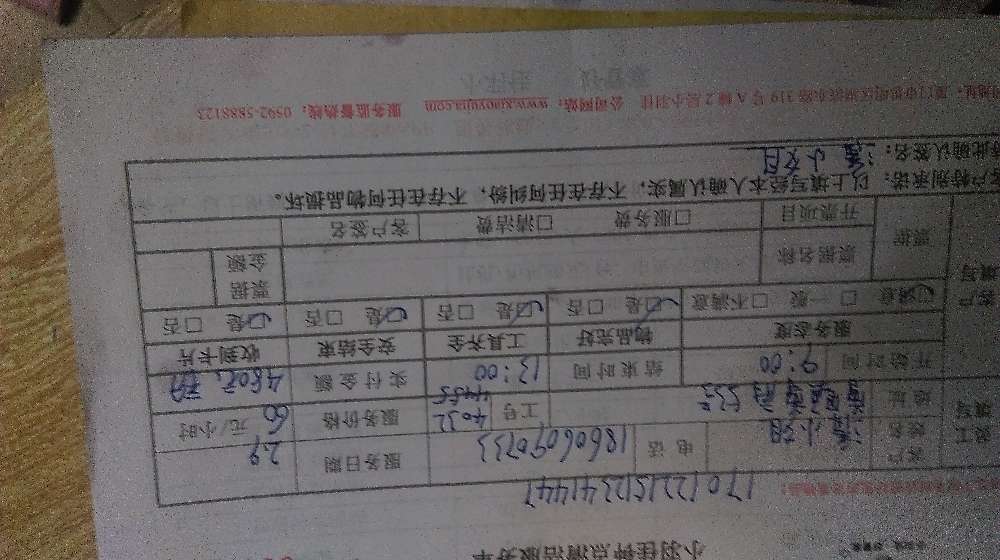 小羽佳钟点清洁服务单
1701221512341447
客户姓名 潘小姐 电话 18606090733 服务日期 29
地址 工号 4032 4455 服务价格 60 元/小时
开始时间 9:00 结束时间 13:00 实付金额 480元
服务态度 物品完好 工具齐全 安全结束 收到卡片
☑满意 □一般 □不满意 ☑是 □否 ☑是 □否 ☑是 □否 ☑是 □否
票据 票据名称 票据金额
开票项目 □服务费 □清洁费 客户签名
客户特别承诺：以上填写经本人确认属实，不存在任何纠纷，不存在任何物品损坏。
特此确认签名：潘小姐
319号A幢2层小羽佳 公司网站：www.xiaoyujia.com 服务监督热线：0592-5888123